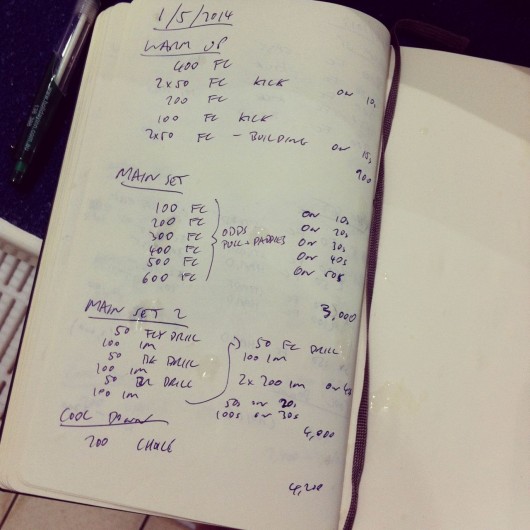 1/5/2014
WARM UP
400 FC
2x50 FC KICK on 10s
200 FC
100 FC KICK
2x50 FC - BUILDING on 15s
900
MAIN SET
100 FC on 10s
200 FC on 20s
300 FC ODDS on 30s
400 FC PULL + PADDLES on 40s
500 FC on 50s
600 FC
3,000
MAIN SET 2
50 FLY DRILL
100 IM
50 BK DRILL
100 IM
50 BR DRILL
100 IM
50 FC DRILL
100 IM
2 x 200 IM on
50s on 20s
100s on 30s
4,000
COOL DOWN
200 CHOICE
4,200